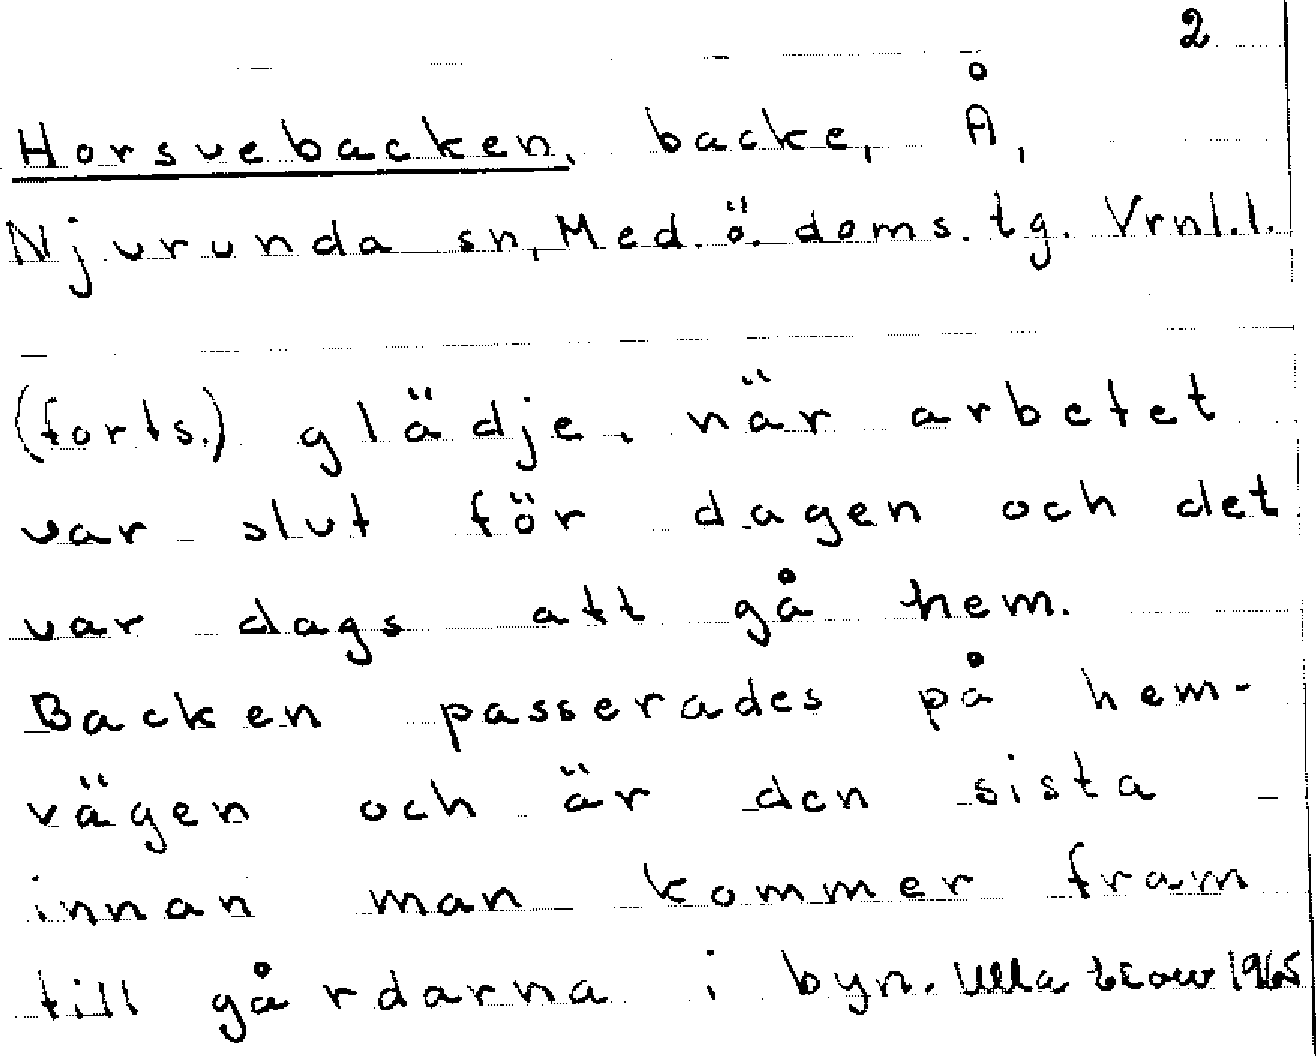 2
Horsvebacken, backe, Å,
Njurunda sn, Med. ö. doms. tg. Vrnl.l.
(forts.) glädje, när arbetet
var slut för dagen och det
var dags att gå hem.
Backen passerades på hem-
vägen och är den sista
innan man kommer fram
till gårdarna i byn. Ulla 1965